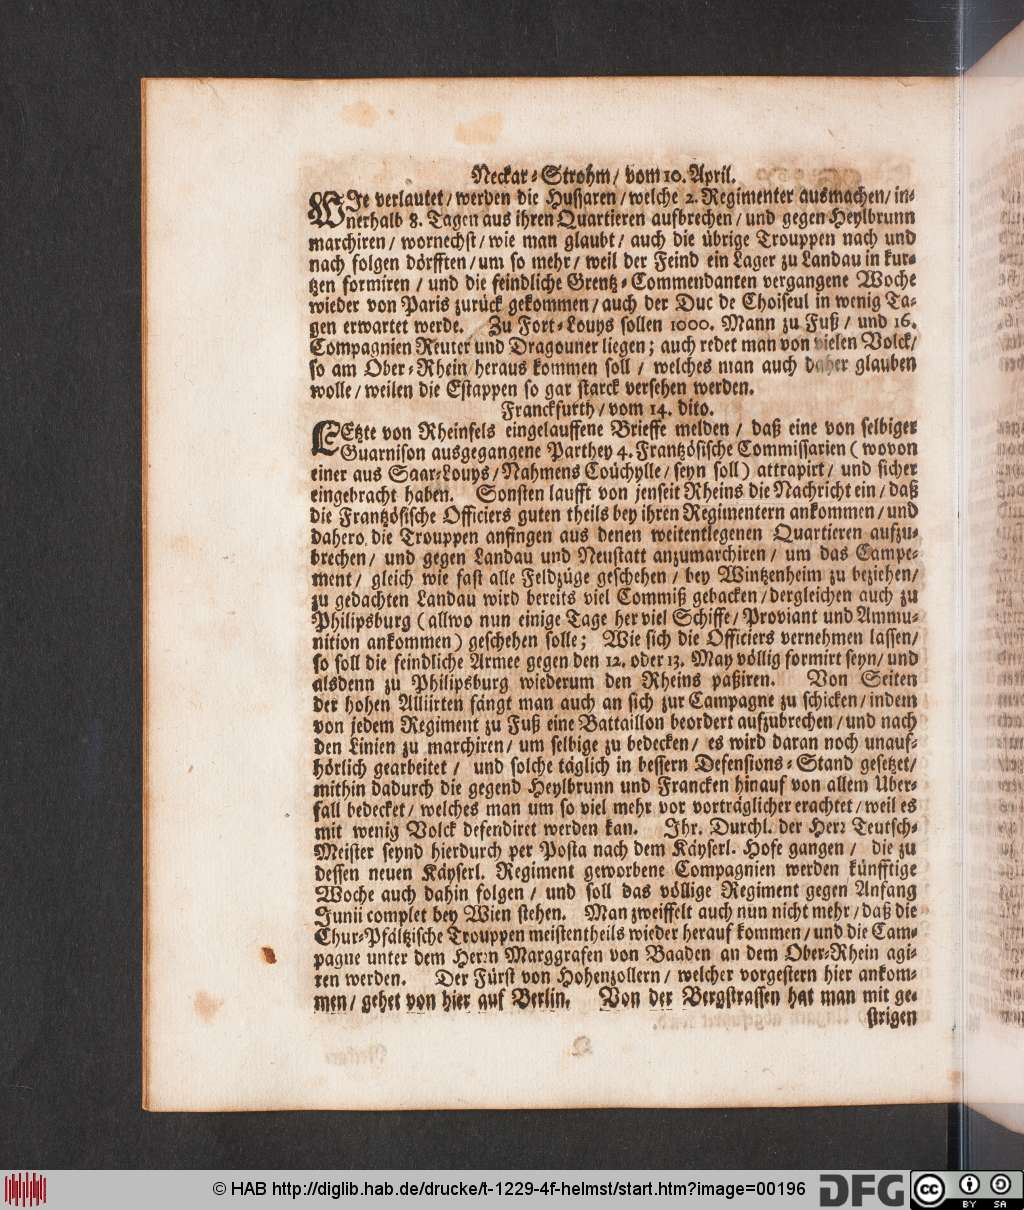 Neckar-Strohm/ vom 10. April.
WIe verlautet/ werden die Hussaren/ welche 2. Regimenter ausmachen/ in-
nerhalb 8. Tagen aus ihren Quartieren aufbrechen/ und gegen Heylbrunn
marchiren/ wornechst/ wie man glaubt/ auch die übrige Trouppen nach und
nach folgen dörfften/ um so mehr/ weil der Feind ein Lager zu Landau in kur-
tzen formiren/ und die feindliche Grentz-Commendanten vergangene Woche
wieder von Paris zurück gekommen/ auch der Duc de Choiseul in wenig Ta-
gen erwartet werde. Zu Fort-Louys sollen 1000. Mann zu Fuß/ und 16.
Compagnien Reuter und Dragouner liegen; auch redet man von vielen Volck/
so am Ober-Rhein heraus kommen soll/ welches man auch daher glauben
wolle/ weilen die Estappen so gar starck versehen werden.
Franckfurth/ vom 14. dito.
LEtzte von Rheinfels eingelauffene Brieffe melden/ daß eine von selbiger
Guarnison ausgegangene Parthey 4. Frantzösische Commissarien (wovon
einer aus Saar-Louys/ Nahmens Coúchylle/ seyn soll) attrapirt/ und sicher
eingebracht haben. Sonsten laufft von jenseit Rheins die Nachricht ein/ daß
die Frantzösische Officiers guten theils bey ihren Regimentern ankommen/ und
dahero die Trouppen anfingen aus denen weitentlegenen Quartieren aufzu-
brechen/ und gegen Landau und Neustatt anzumarchiren/ um das Campe-
ment/ gleich wie fast alle Feldzüge geschehen/ bey Wintzenheim zu beziehen/
zu gedachten Landau wird bereits viel Commiß gebacken/ dergleichen auch zu
Philipsburg (allwo nun einige Tage her viel Schiffe/ Proviant und Ammu-
nition ankommen) geschehen solle; Wie sich die Officiers vernehmen lassen/
so soll die feindliche Armee gegen den 12. oder 13. May völlig formirt seyn/ und
alsdenn zu Philipsburg wiederum den Rheins paßiren. Von Seiten
der hohen Alliirten fängt man auch an sich zur Campagne zu schicken/ indem
von jedem Regiment zu Fuß eine Battaillon beordert aufzubrechen/ und nach
den Linien zu marchiren/ um selbige zu bedecken/ es wird daran noch unauf-
hörlich gearbeitet/ und solche täglich in bessern Defensions-Stand gesetzet/
mithin dadurch die gegend Heylbrunn und Francken hinauf von allem Uber-
fall bedecket/ welches man um so viel mehr vor vorträglicher erachtet/ weil es
mit wenig Volck defendiret werden kan. Ihr. Durchl. der Herr Teutsch-
Meister seynd hierdurch per Posta nach dem Käyserl. Hofe gangen/ die zu
dessen neuen Käyserl. Regiment geworbene Compagnien werden künfftige
Woche auch dahin folgen/ und soll das völlige Regiment gegen Anfang
Junii complet bey Wien stehen. Man zweiffelt auch nun nicht mehr/ daß die
Chur-Pfältzische Trouppen meistentheils wieder herauf kommen/ und die Cam-
pagne unter dem Herrn Marggrafen von Baaden an dem Ober-Rhein agi-
ren werden. Der Fürst von Hohenzollern/ welcher vorgestern hier ankom-
men/ gehet von hier auf Berlin. Von der Bergstrassen hat man mit ge-
strigen
© HAB http://diglib.hab.de/drucke/t-1229-4f-helmst/start.htm?image=00196
DFG
cc BY SA